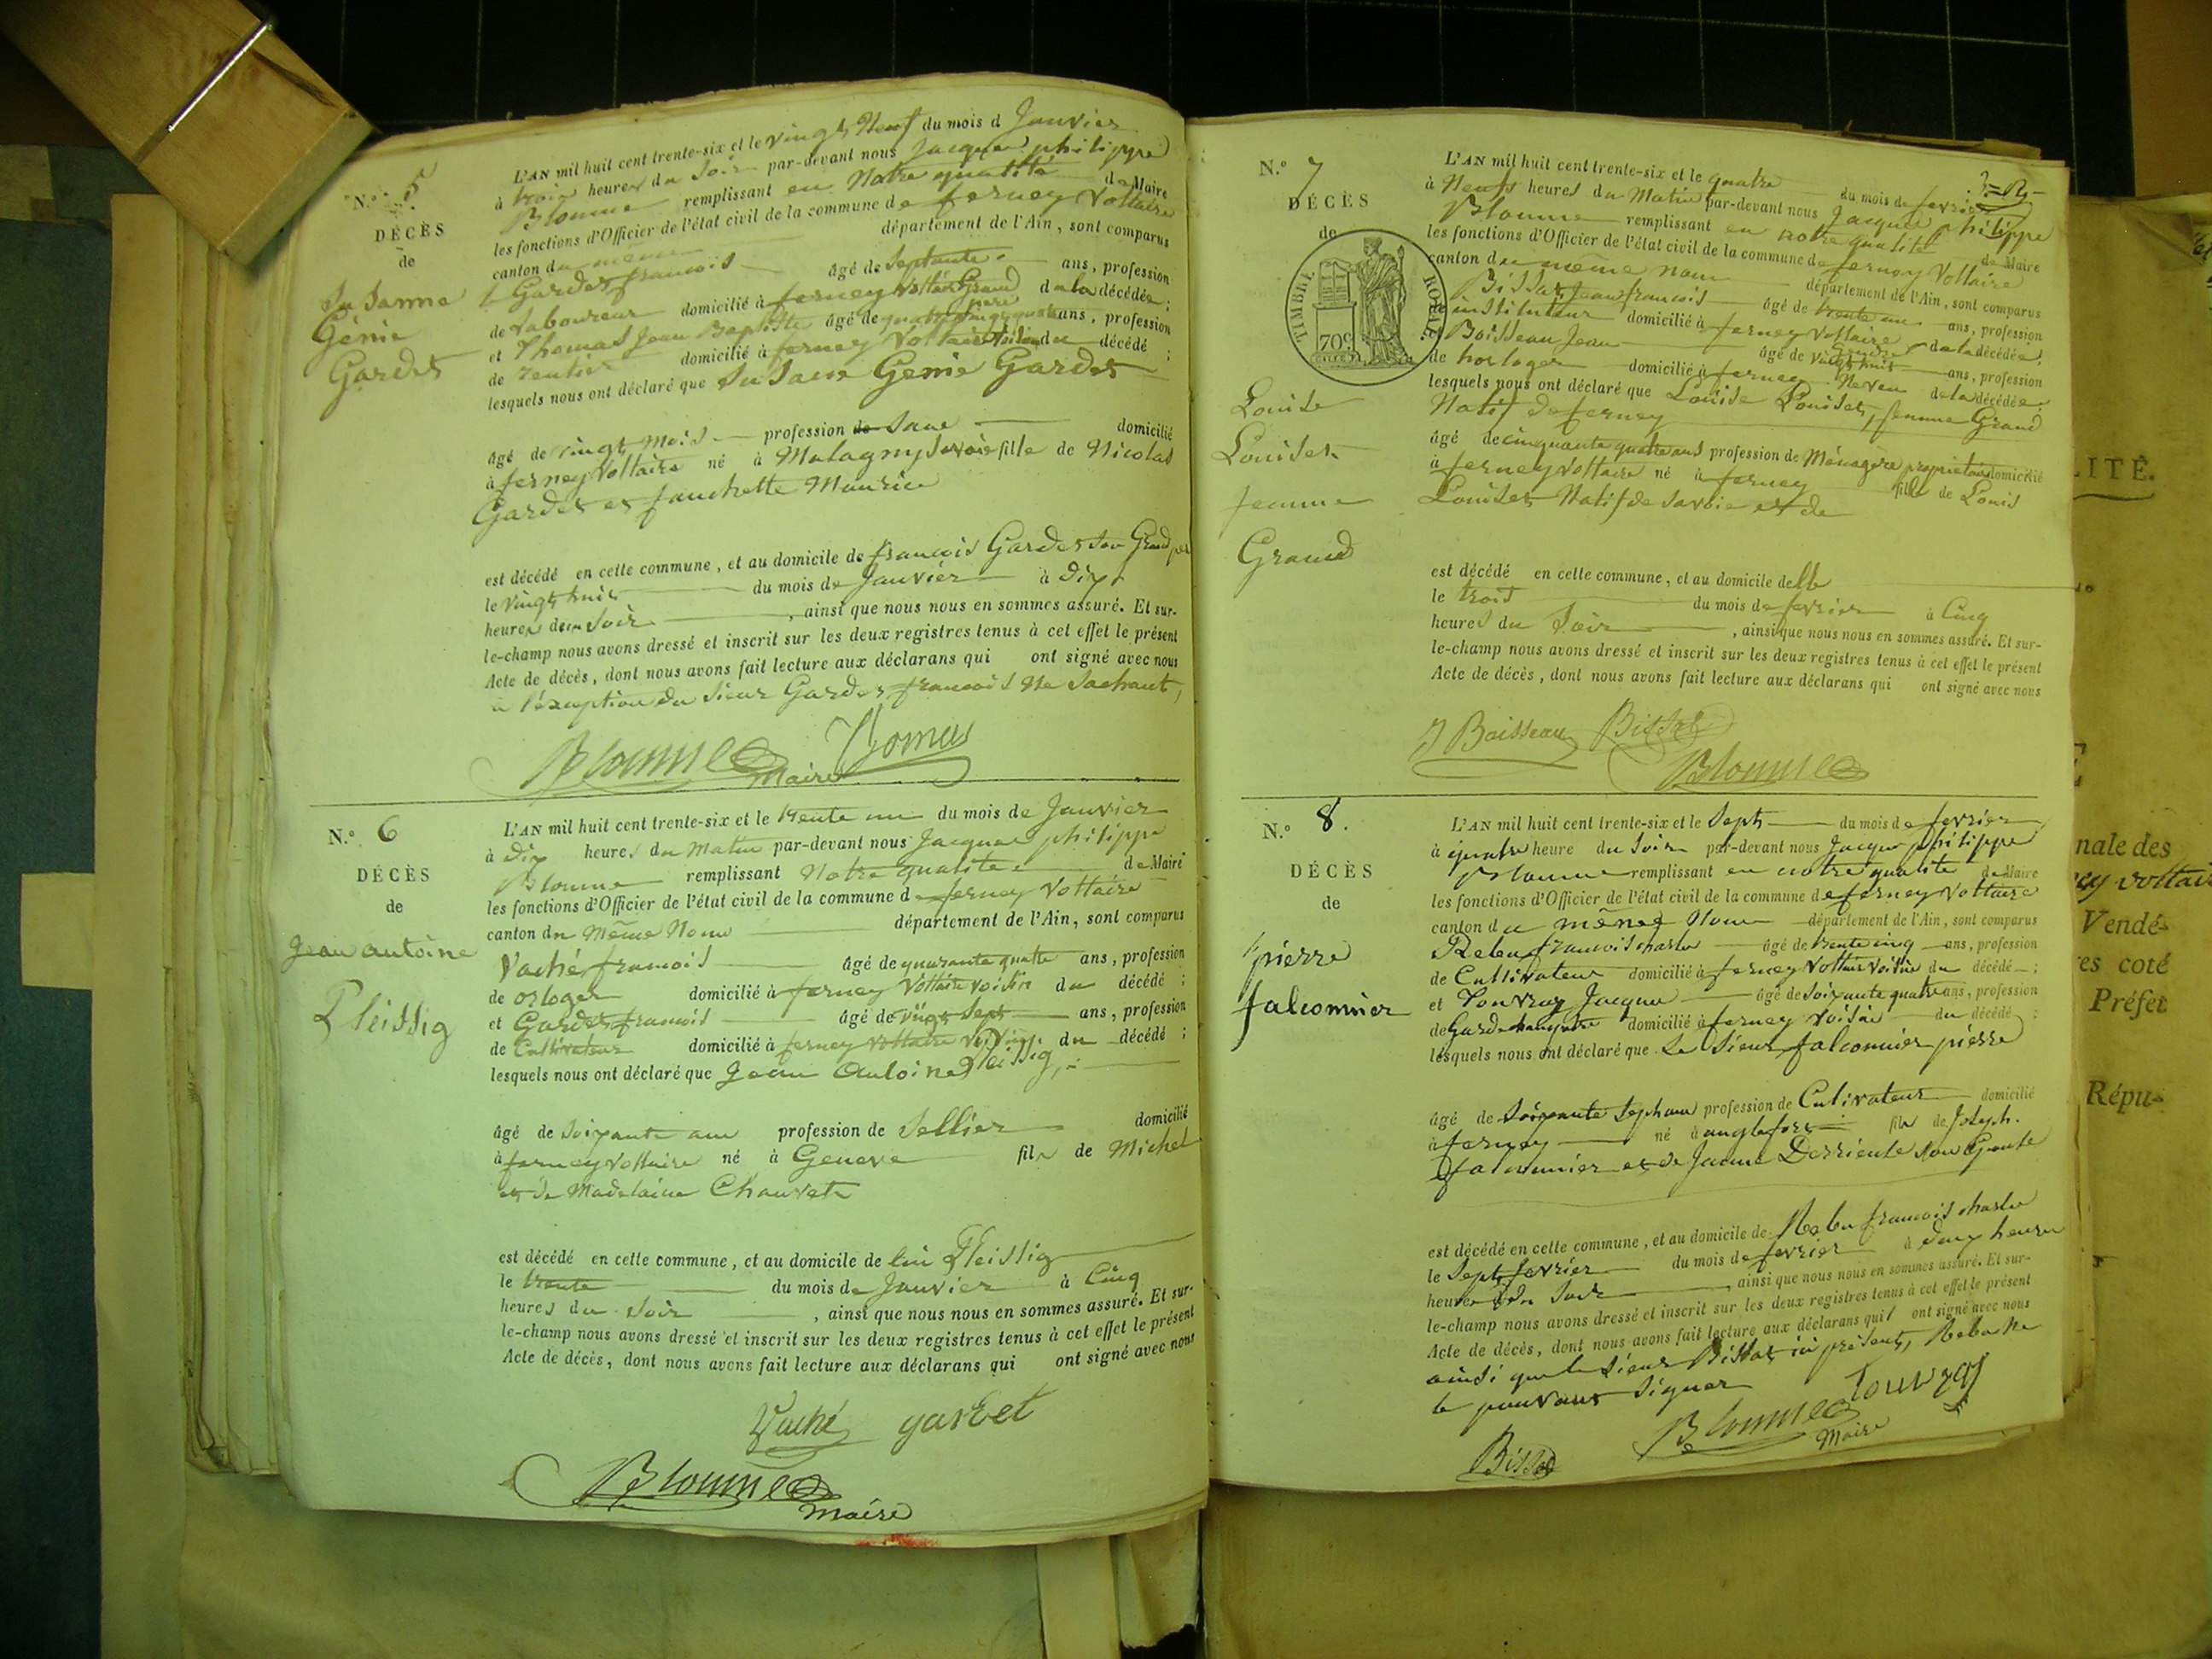 N.º 5
DÉCÈS
de
Susanne
Génie
Gardet
L'AN mil huit cent trente-six et le vingt Neuf du mois d Janvier
à trois heures du Soir par-devant nous Jacques philippe
Blonme remplissant en Notre qualité de Maire
les fonctions d'Officier de l'état civil de la commune de ferney Voltaire
canton du même département de l'Ain, sont comparus
Gardet francois âgé de Septante ans, profession
de Laboureur domicilié à ferney Voltaire Grand père de la décédée ;
et Thomas Jean Baptiste âgé de ans, profession
de rentier domicilié à ferney Voltaire voisin du décédé ;
lesquels nous ont déclaré que Susane Génie Gardet
âgé de vingt mois profession de Sane domicilié
à ferney Voltaire né à Malagny Savoie fille de Nicolas
Gardet et fanchette Maurice
est décédé en cette commune, et au domicile de francois Gardet son Grand père
le vingt huit du mois de Janvier à Dix
heures du Soir , ainsi que nous nous en sommes assuré. Et sur-
le-champ nous avons dressé et inscrit sur les deux registres tenus à cet effet le présent
Acte de décès, dont nous avons fait lecture aux déclarans qui ont signé avec nous
à l'éxception du Sieur Gardet francois Ne Sachant,
Blonme Maire Tomas
N.º 6
DÉCÈS
de
Jean antoine
Pleissig
L'AN mil huit cent trente-six et le trente un du mois de Janvier
à Dix heures du Matin par-devant nous Jacques philippe
Blonme remplissant Notre qualité de Maire
les fonctions d'Officier de l'état civil de la commune de ferney Voltaire
canton du Même Nom département de l'Ain, sont comparus
Vaché francois âgé de quarante quatre ans, profession
de orloger domicilié à ferney Voltaire voisin du décédé ;
et Gardet francois âgé de vingt Sept ans, profession
de Cultivateur domicilié à ferney Voltaire voisin du décédé ;
lesquels nous ont déclaré que Jean Antoine Pleissig,
âgé de Soixante ans profession de Sellier domicilié
à ferney Voltaire né à Geneve fils de Michel
et de Madelaine Chauvet
est décédé en cette commune, et au domicile de lui Pleissig
le trente du mois de Janvier à Cinq
heures du Soir , ainsi que nous nous en sommes assuré. Et sur-
le-champ nous avons dressé et inscrit sur les deux registres tenus à cet effet le présent
Acte de décès, dont nous avons fait lecture aux déclarans qui ont signé avec nous
Vaché gardet
Blonme
Maire
N.º 7
DÉCÈS
de
TIMBRE ROYAL
70 c
Louise
Louiset
femme
Grand
L'AN mil huit cent trente-six et le quatre du mois de fevrier
à Neufs heures du Matin par-devant nous Jacques philippe
Blonme remplissant en notre qualité de Maire
les fonctions d'Officier de l'état civil de la commune de ferney Voltaire
canton du même nom département de l'Ain, sont comparus
Bissat Jean francois âgé de trente un ans, profession
instituteur domicilié à ferney Voltaire de la décédée ;
Boisseau Jean âgé de vingt huit ans, profession
de horloger domicilié à ferney Neveu de la décédée ;
lesquels nous ont déclaré que Louise Louiset, femme Grand
Natif de ferney
âgé de cinquante quatre ans profession de Ménagère propriétaire domicilié
à ferney Voltaire né à ferney fille de Louis
Louiset Natif de Savoie et de
est décédé en cette commune, et au domicile delle
le trois du mois de fevrier à Cinq
heures du Soir , ainsi que nous nous en sommes assuré. Et sur-
le-champ nous avons dressé et inscrit sur les deux registres tenus à cet effet le présent
Acte de décès, dont nous avons fait lecture aux déclarans qui ont signé avec nous
J Boisseau Bissat
Blonme
N.º 8.
DÉCÈS
de
pierre
falconnier
L'AN mil huit cent trente-six et le Sept du mois de fevrier
à quatre heure du Soir par-devant nous Jacque philippe
Blonme remplissant en notre qualité de Maire
les fonctions d'Officier de l'état civil de la commune de ferney Voltaire
canton du même Nom département de l'Ain, sont comparus
Reben francois charles âgé de trente cinq ans, profession
de Cultivateur domicilié à ferney Voltaire voisin du décédé ;
et Touvray Jacque âgé de Soixante quatre ans, profession
de Garde champêtre domicilié à ferney voisin du décédé ;
lesquels nous ont déclaré que Le Sieur falconnier pierre
âgé de Soixante Sept ans profession de Cultivateur domicilié
à ferney né à anglefort fils de Joseph
falconnier et de Jeanne
est décédé en cette commune, et au domicile de Reben francois charles
le Sept fevrier du mois de fevrier à deux heures
heures du Soir ainsi que nous nous en sommes assuré. Et sur-
le-champ nous avons dressé et inscrit sur les deux registres tenus à cet effet le présent
Acte de décès, dont nous avons fait lecture aux déclarans qui ont signé avec nous
ainsi que le Sieur Bissat ici présent, Reben Ne
le pouvant Signer
Touvray
Blonme
Maire
Bissat
LITÉ.
nale des
ey voltair
Vendé-
es coté
Préfet
Répu-